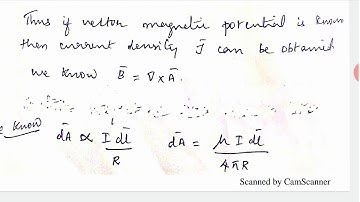 Thus if vector magnetic potential is known
then current density J̄ can be obtained
we know B̄ = ∇ × Ā.
know d̄A ∝ I d̄l / R d̄A = μ I d̄l / 4πR
Scanned by CamScanner